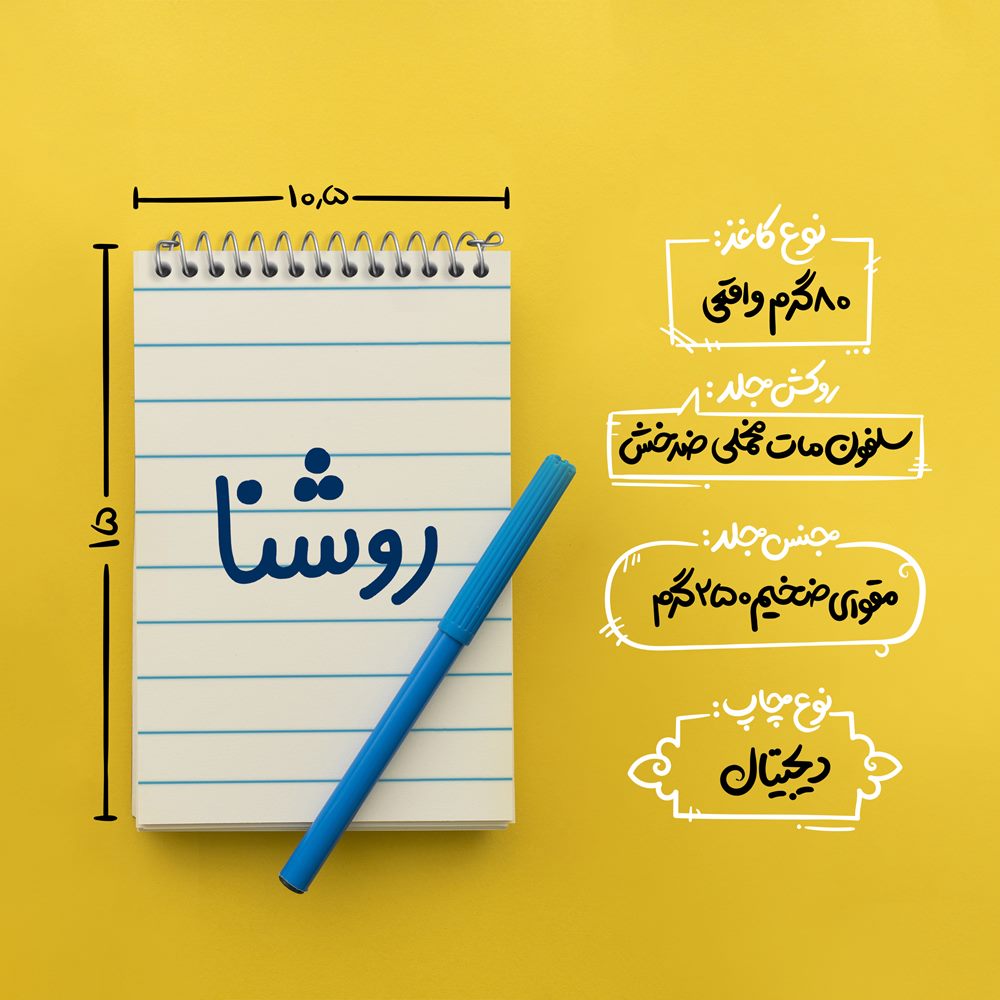 ۱۰٫۵
۱۵
روشنا
نوع کاغذ:
۸۰گرم واقعی
روکش جلد:
سلفون مات مخملی ضدخش
جنس جلد:
مقوای ضخیم ۲۵۰گرم
نوع چاپ:
دیجیتال